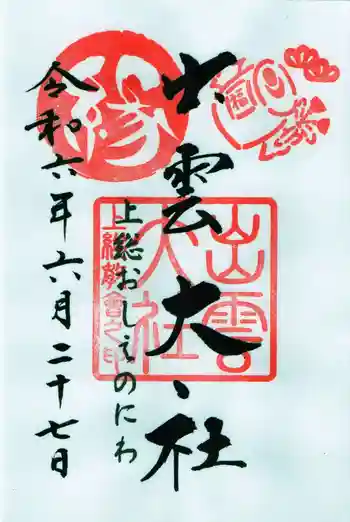 出雲大社
上総おしえのにわ
令和六年六月二十七日
縁
福
出雲
大社
上総教會之印